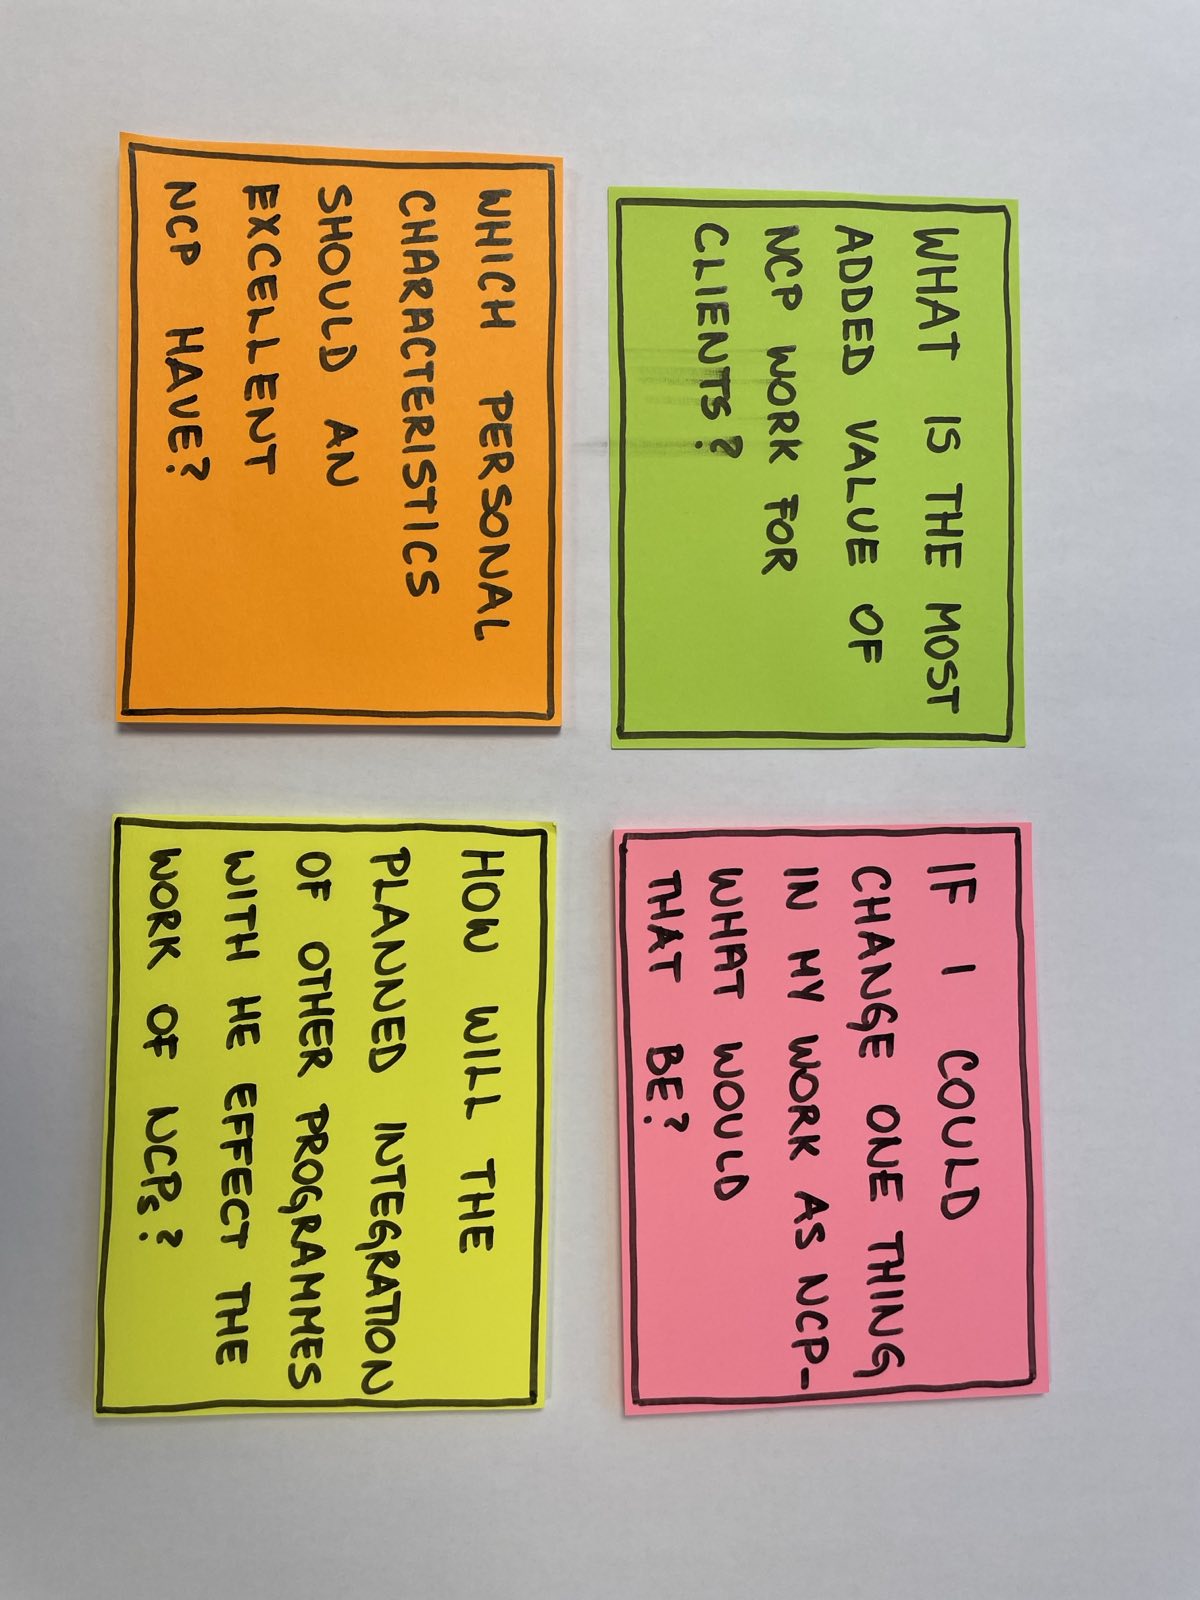 WHAT IS THE MOST
ADDED VALUE OF
NCP WORK FOR
CLIENTS?
IF I COULD
CHANGE ONE THING
IN MY WORK AS NCP-
WHAT WOULD
THAT BE?
WHICH PERSONAL
CHARACTERISTICS
SHOULD AN
EXCELLENT
NCP HAVE?
HOW WILL THE
PLANNED INTEGRATION
OF OTHER PROGRAMMES
WITH HE EFFECT THE
WORK OF NCPs?